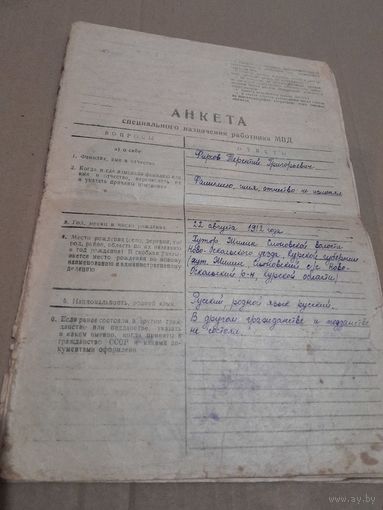 АНКЕТА
специального назначения работника МВД
ВОПРОСЫ
ОТВЕТЫ
а) о себе:
1. Фамилия, имя и отчество
Григорьевич
2. Когда и где изменили фамилию
имя и отчество, перечислить их
и указать причины изменения
Фамилию, имя, отчество не изменял
3. Год, месяц и число рождения
22 августа 1912 года
4. Место рождения (село, деревня, го-
род, район, область по их названию
в год рождения). В скобках указы-
вается место рождения по новому
наименованию и административному
делению
Хутор волости
Ново-Оскольского уезда, Курской губернии
(хут. с/с Ново-
Оскольский р-н, Курской области)
5. Национальность, родной язык
Русский родной язык русский.
6. Если ранее состояли в другом граж-
данстве или подданстве, указать
в каком именно, когда приняты в
гражданство СССР и какими до-
кументами оформлено
В другом гражданстве и подданстве
не состоял
www.ay.by